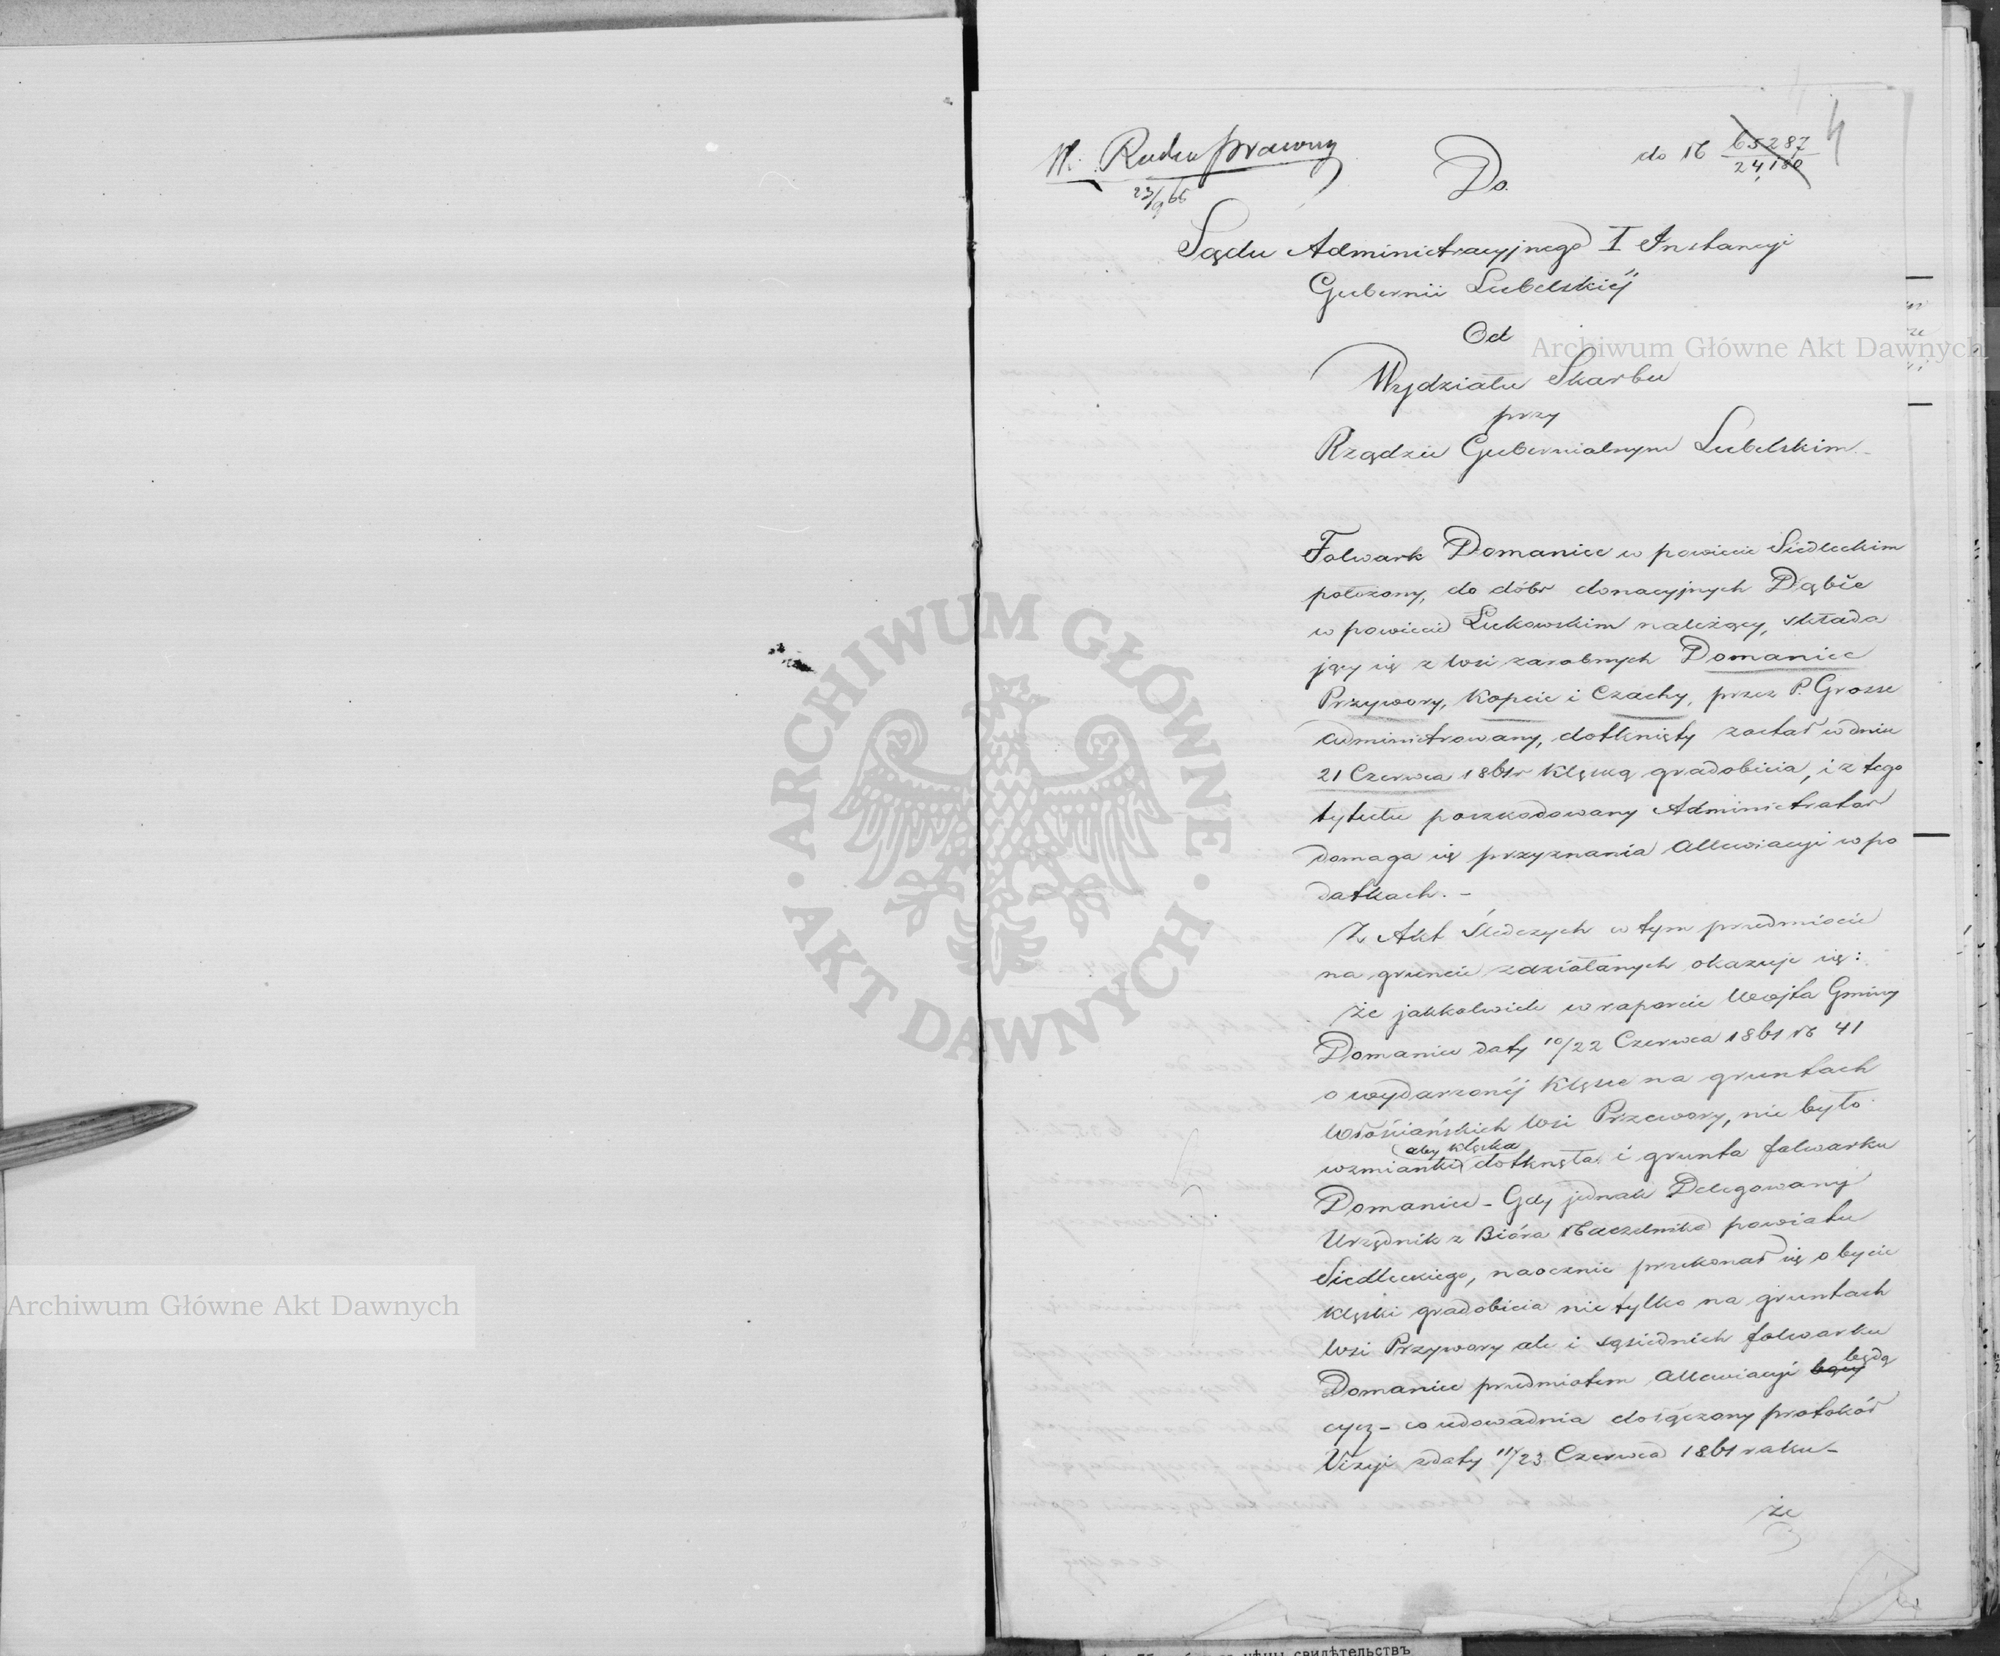 W. Radca prawny
23/9 65
do № 65287
24,180
4
Do
Sądu Administracyjnego I Instancyi
Gubernii Lubelskiéj
Od
Wydziału Skarbu
przy
Rządzie Gubernialnym Lubelskim
Folwark Domanice w powiecie Siedleckim
położony, do dóbr donacyjnych Dąbie
w powiecie Łukowskim należący, składa
jący się z wsi zarobnych Domanice
Przywory, Kopcie i Czachy, przez P. Grosse
administrowany, dotknięty został w dniu
21 Czerwca 1861 r klęską gradobicia, i z tego
tytułu poszkodowany Administrator
domaga się przyznania Allewiacyi w po
datkach. -
Z Akt Śledczych w tym przedmiocie
na gruncie zdziałanych okazuje się:
że jakkolwiek w raporcie Wójta Gminy
Domanice daty 10/22 Czerwca 1861 № 41
o wydarzonéj klęsce na gruntach
Włościańskich Wsi Przewory, nie było
wzmianki aby klęska dotknęła i grunta folwarku
Domanice - Gdy jednak Delegowany
Urzędnik z Bióra Naczelnika powiatu
Siedleckiego, naocznie przekonał się o bycie
klęski gradobicia nie tylko na gruntach
Wsi Przywory ale i sąsiednich folwarku
Domanice przedmiotem Allewiacyi będą
cych - co udowadnia dołączony protokół
Wizyi z daty 11/23 Czerwca 1861 roku -
że
Archiwum Główne Akt Dawnych
Archiwum Główne Akt Dawnych
ARCHIWUM GŁÓWNE · AKT DAWNYCH ·
свидѣтельствъ